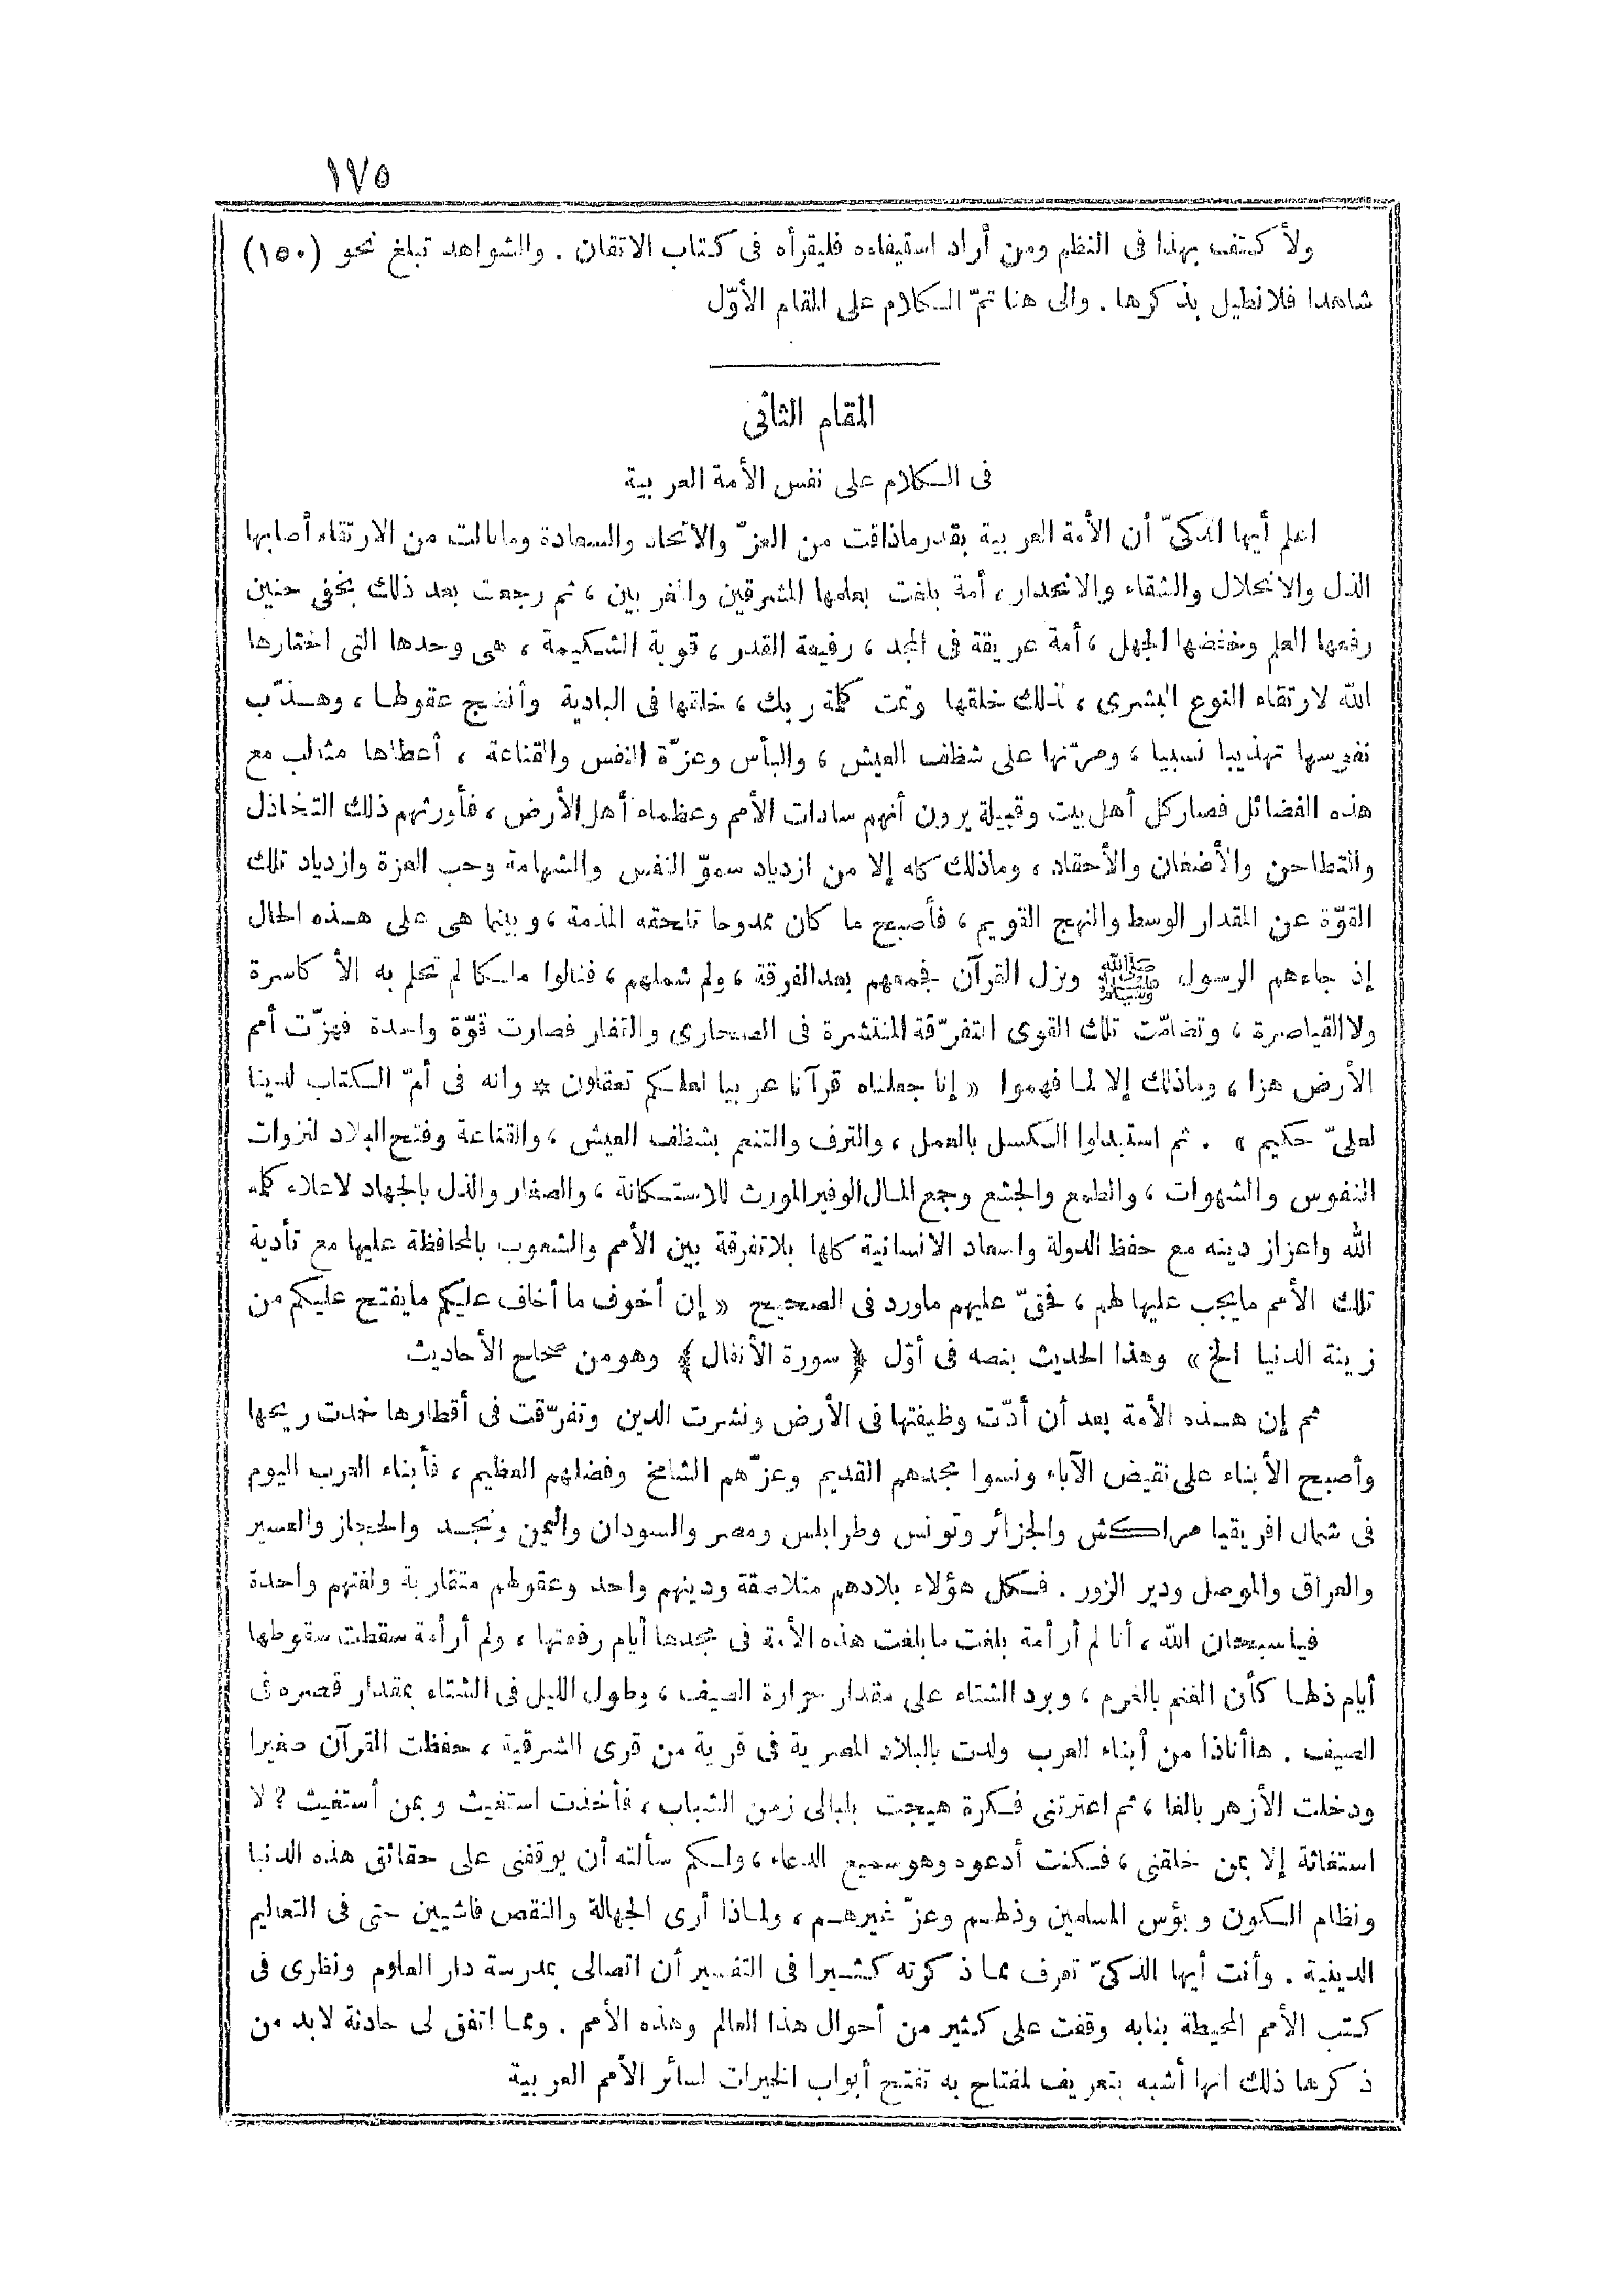 ١٧٥
ولأكتف بهذا فى النظم ومن أراد استيفاءه فليقرأه فى كتاب الاتقان . والشواهد تبلغ نحو (١٥٠)
شاهدا فلا نطيل بذكرها . والى هنا تمّ الكلام على المقام الأوّل
المقام الثانى
فى الكلام على نفس الأمة العربية
اعلم أيها الذكىّ أن الأمة العربية بقدر ماذاقت من العزّ والاتحاد والسعادة ومانالت من الارتقاء أصابها
الذل والانحلال والشقاء والانحدار ، أمة بلغت بعلمها المشرقين والمغربين ، ثم رجعت بعد ذلك بخفى حنين
رفعها العلم وخفضها الجهل ، أمة عريقة فى المجد ، رفيعة القدر ، قوية الشكيمة ، هى وحدها التى اختارها
الله لارتقاء النوع البشرى ، لذلك خلقها وتمت كلمة ربك ، خلقها فى البادية وأنضج عقولها ، وهذّب
نفوسها تهذيبا نسبيا ، ومرّنها على شظف العيش ، والبأس وعزّة النفس والقناعة ، أعطاها مثالب مع
هذه الفضائل فصار كل أهل بيت وقبيلة يرون أنهم سادات الأمم وعظماء أهل الأرض ، فأورثهم ذلك التخاذل
والتطاحن والأضغان والأحقاد ، وماذلك كله إلا من ازدياد سموّ النفس والشهامة وحب العزة وازدياد تلك
القوّة عن المقدار الوسط والنهج القويم ، فأصبح ما كان ممدوحا تلحقه المذمة ، وبينما هى على هذه الحال
إذ جاءهم الرسول ﷺ ونزل القرآن فجمعهم بعد الفرقة ، ولم شملهم ، فنالوا ملكا لم تحلم به الأكاسرة
ولا القياصرة ، وتضامّت تلك القوى المتفرّقة المنتشرة فى الصحارى والقفار فصارت قوّة واحدة فهزّت أمم
الأرض هزا ، وماذلك إلا لما فهموا « إنا جعلناه قرآنا عربيا لعلكم تعقلون * وانه فى أمّ الكتاب لدينا
لعلىّ حكيم » . ثم استبدلوا الكسل بالعمل ، والترف والتنعم بشظف العيش ، والقناعة وفتح البلاد لنزوات
النفوس والشهوات ، والطمع والجشع وجمع المال الوفير المورث للاستكانة ، والصغار والذل بالجهاد لاعلاء كلمة
الله واعزاز دينه مع حفظ الدولة واسعاد الانسانية كلها بلاتفرقة بين الأمم والشعوب بالمحافظة عليها مع تأدية
تلك الأمم مايجب عليها لهم ، فحقّ عليهم ماورد فى الصحيح « إن أخوف ما أخاف عليكم مايفتح عليكم من
زينة الدنيا الخ » وهذا الحديث بنصه فى أوّل ﴿ سورة الأنفال ﴾ وهو من صحاح الأحاديث
ثم إن هذه الأمة بعد أن أدّت وظيفتها فى الأرض ونشرت الدين وتفرّقت فى أقطارها خمدت ريحها
وأصبح الأبناء على نقيض الآباء ونسوا مجدهم القديم وعزّهم الشامخ وفضلهم العظيم ، فأبناء العرب اليوم
فى شمال افريقيا مراكش والجزائر وتونس وطرابلس ومصر والسودان واليمن ونجد والحجاز والعسير
والعراق والموصل ودير الزور . فكل هؤلاء بلادهم متلاصقة ودينهم واحد وعقولهم متقاربة ولغتهم واحدة
فياسبحان الله ، أنا لم أر أمة بلغت مابلغت هذه الأمة فى مجدها أيام رفعتها ، ولم أر أمة سقطت سقوطها
أيام ذلها كأن الغنم بالغرم ، وبرد الشتاء على مقدار حرارة الصيف ، وطول الليل فى الشتاء بمقدار قصره فى
الصيف . هاأناذا من أبناء العرب ولدت بالبلاد المصرية فى قرية من قرى الشرقية ، حفظت القرآن صغيرا
ودخلت الأزهر يالغا ، ثم اعترتنى فكرة هيجت بلبالى زمن الشباب ، فأخذت استغيث وبمن أستغيث ؟ لا
استغاثة إلا بمن خلقنى ، فكنت أدعوه وهو سميع الدعاء ، ولكم سألته أن يوقفنى على حقائق هذه الدنيا
ونظام الكون وبؤس المسلمين وذلهم وعزّ غيرهم ، ولماذا أرى الجهالة والنقص فاشيين حتى فى التعاليم
الدينية . وأنت أيها الذكىّ تعرف مما ذكرته كثيرا فى التفسير أن اتصالى بمدرسة دار العلوم ونظرى فى
كتب الأمم المحيطة بنابه وقفت على كثير من أحوال هذا العالم وهذه الأمم . ومما اتفق لى حادثة لابد من
ذكرها ذلك انها أشبه بتعريف لمفتاح به تفتح أبواب الخيرات لسائر الأمم العربية